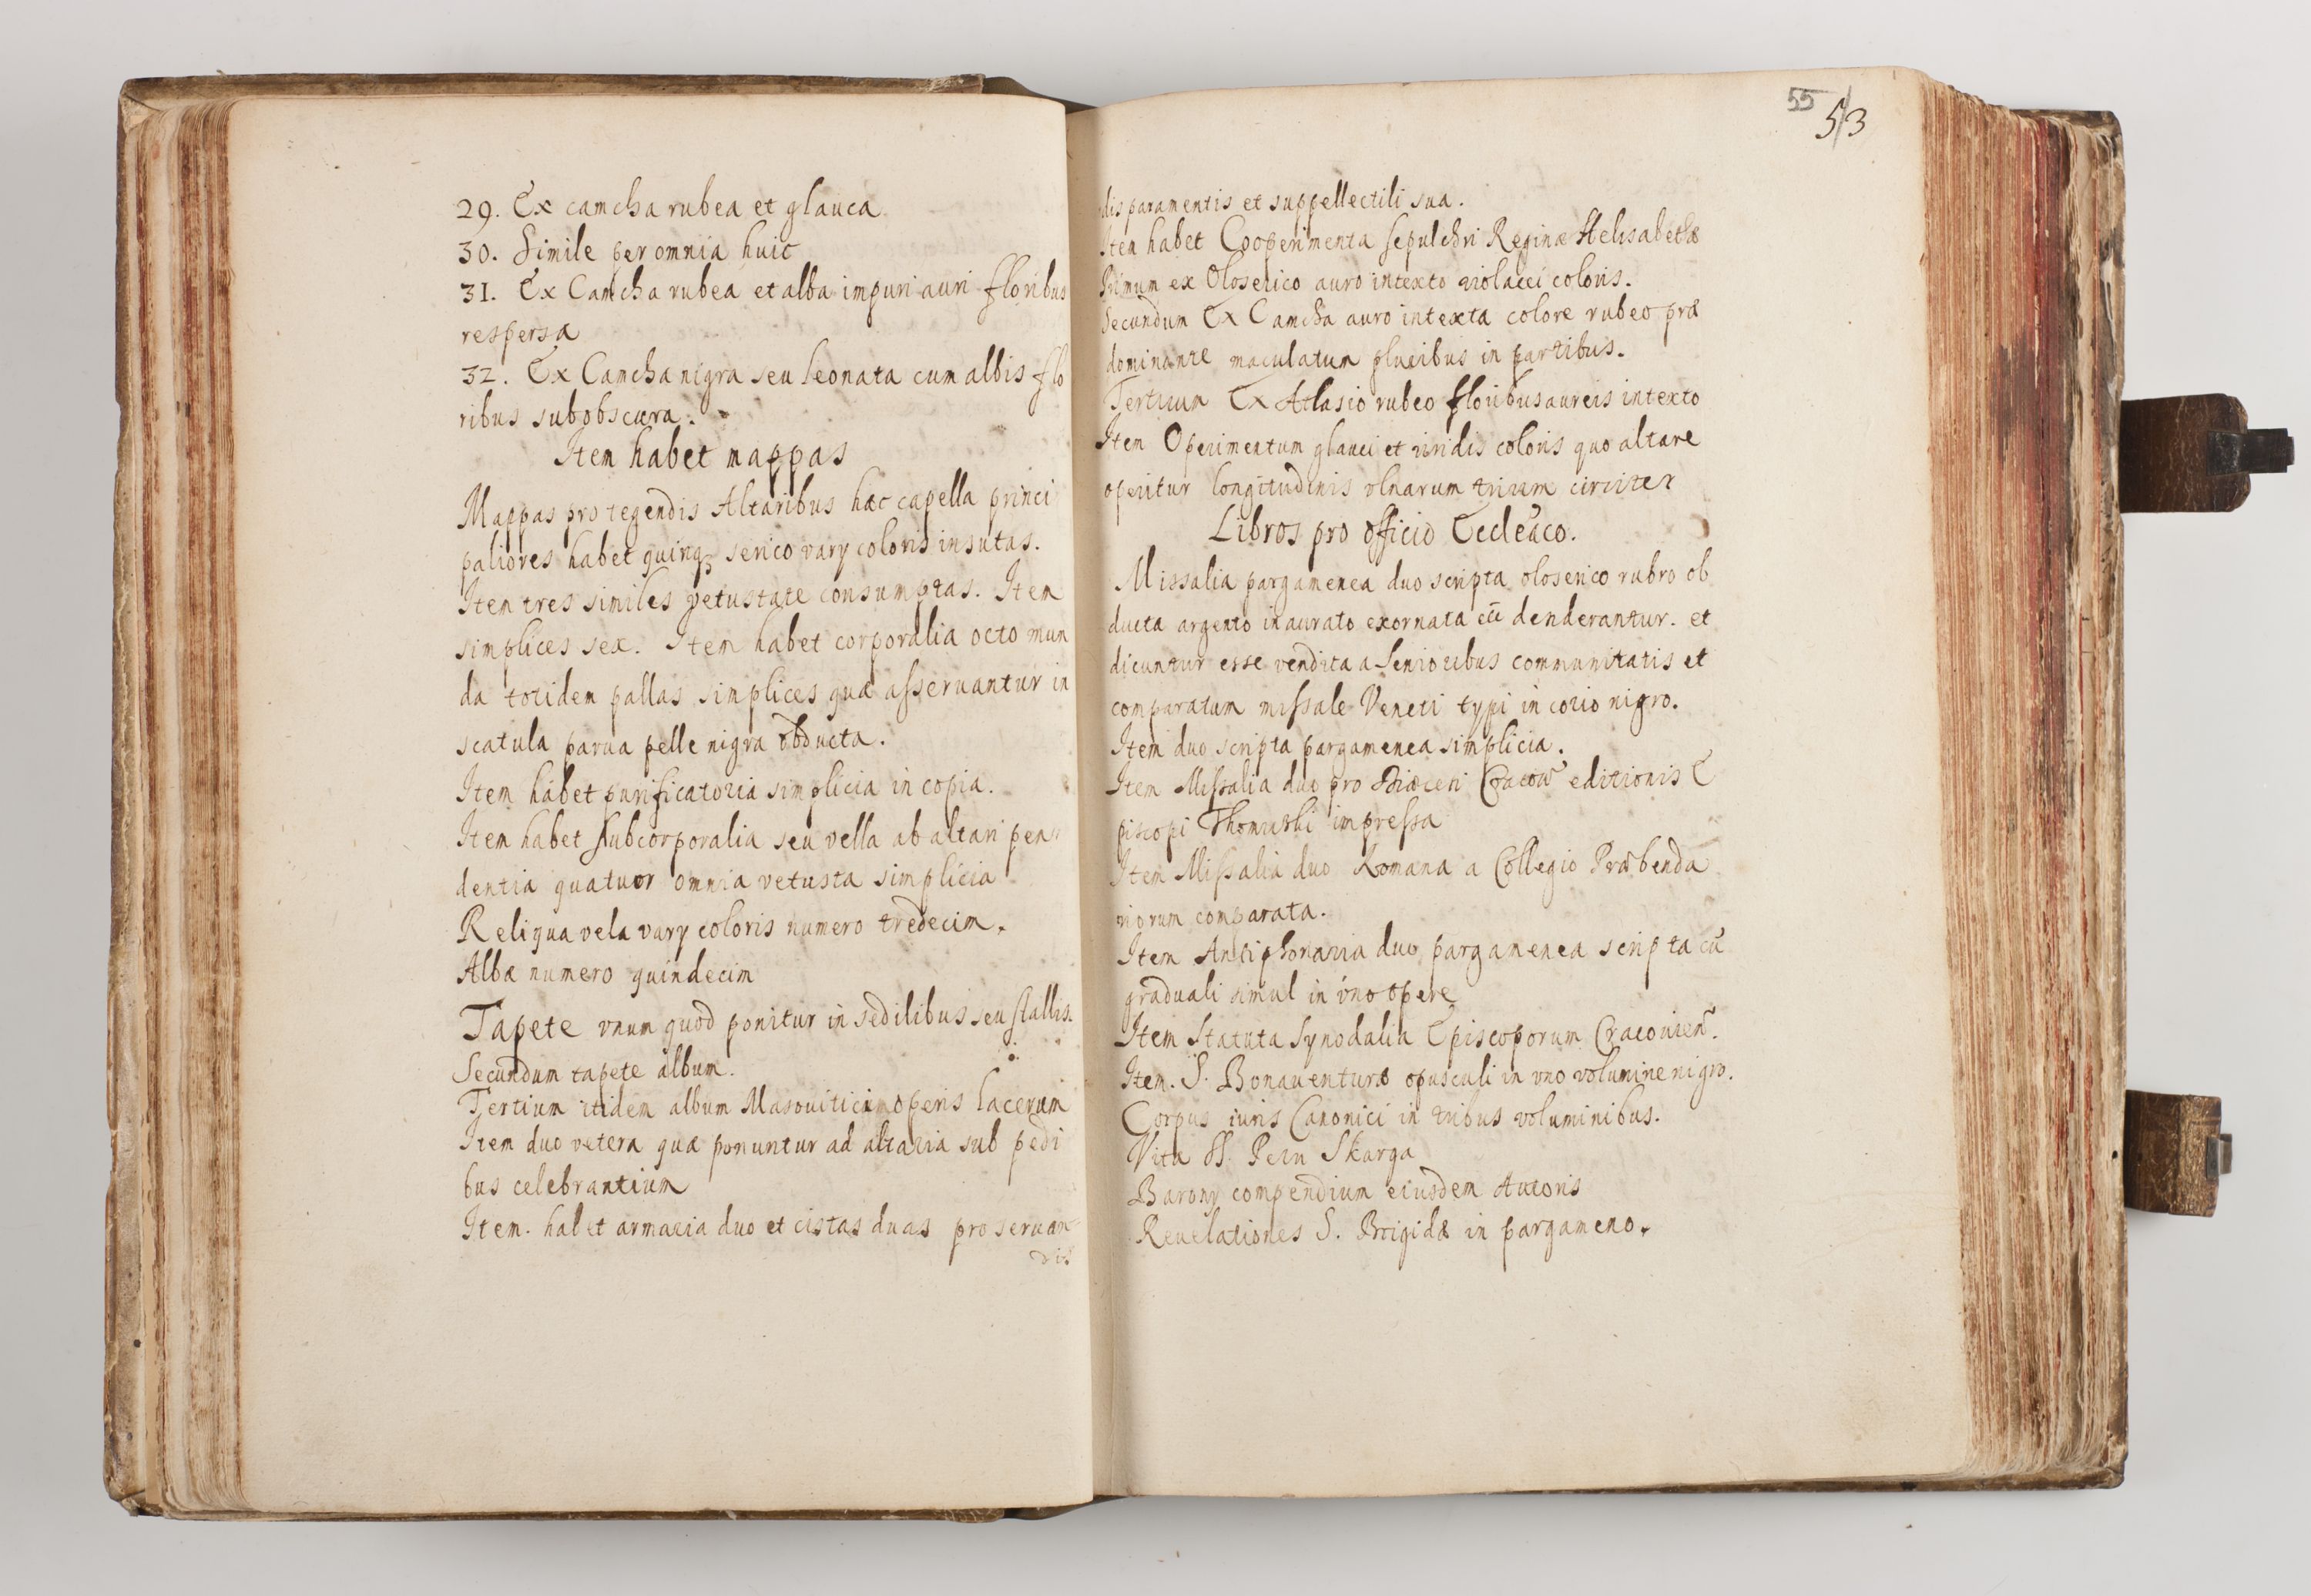 29. Ex camcha rubea et glauca
30. Simile per omnia huic
31. Ex Camcha rubea et alba impuri auri floribus
respersa
32. Ex Camcha nigra seu leonata cum albis flo
ribus subobscura.
Item habet mappas
Mappas pro tegendis Altaribus hæc capella princi
paliores habet quinq₃ serico vary coloris insutas.
Item tres similes vetustate consumptas. Item
simplices sex. Item habet corporalia octo mun
da totidem pallas simplices quæ asseruantur in
scatula parua pelle nigra obducta.
Item habet purificatoria simplicia in copia.
Item habet subcorporalia seu vella ab altari pen
dentia quatuor omnia vetusta simplicia
Reliqua vela vary coloris numero tredecim.
Albæ numero quindecim
Tapete vnum quod ponitur in sedilibus seu stallis.
Secundum tapete album.
Tertium itidem album Masouitici operis lacerum
Item duo vetera quæ ponuntur ad altaria sub pedi
bus celebrantium
Item. habet armaria duo et cistas duas pro seruan
dis
55
53
dis paramentis et suppellectili sua.
Item habet Cooperimenta sepulchri Reginæ Helisabethæ
Primum ex Oloserico auro intexto violacei coloris.
Secundum Ex Camcha auro intexta colore rubeo præ
dominante maculatum pluribus in partibus.
Tertium Ex Atlasio rubeo floribus aureis intexto
Item Operimentum glauci et viridis coloris quo altare
operitur longitudinis vlnarum trium circiter
Libros pro officio Eccleãco.
Missalia pargamenea duo scripta oloserico rubro ob
ducta argento inaurato exornata denderantur. et
dicuntur esse vendita a Senioribus communitatis et
comparatum missale Veneti typi in corio nigro.
Item duo scripta pargamenea simplicia.
Item Missalia duo pro Diæcesi Cracoũ editionis E
piscopi Thomiski impressa
Item Missalia duo Romana a Collegio Præbenda
riorum comparata.
Item Antiphonaria duo pargamenea scripta cũ
graduali simul in vno opere
Item Statuta Synodalia Episcoporum Cracouien̄.
Item. S. Bonauenturæ opusculi in vno volumine nigro.
Corpus iuris Canonici in tribus voluminibus.
Vita SS. Petri Skarga
Barony compendium eiusdem Autoris
Reuelationes S. Brigidæ in pargameno.